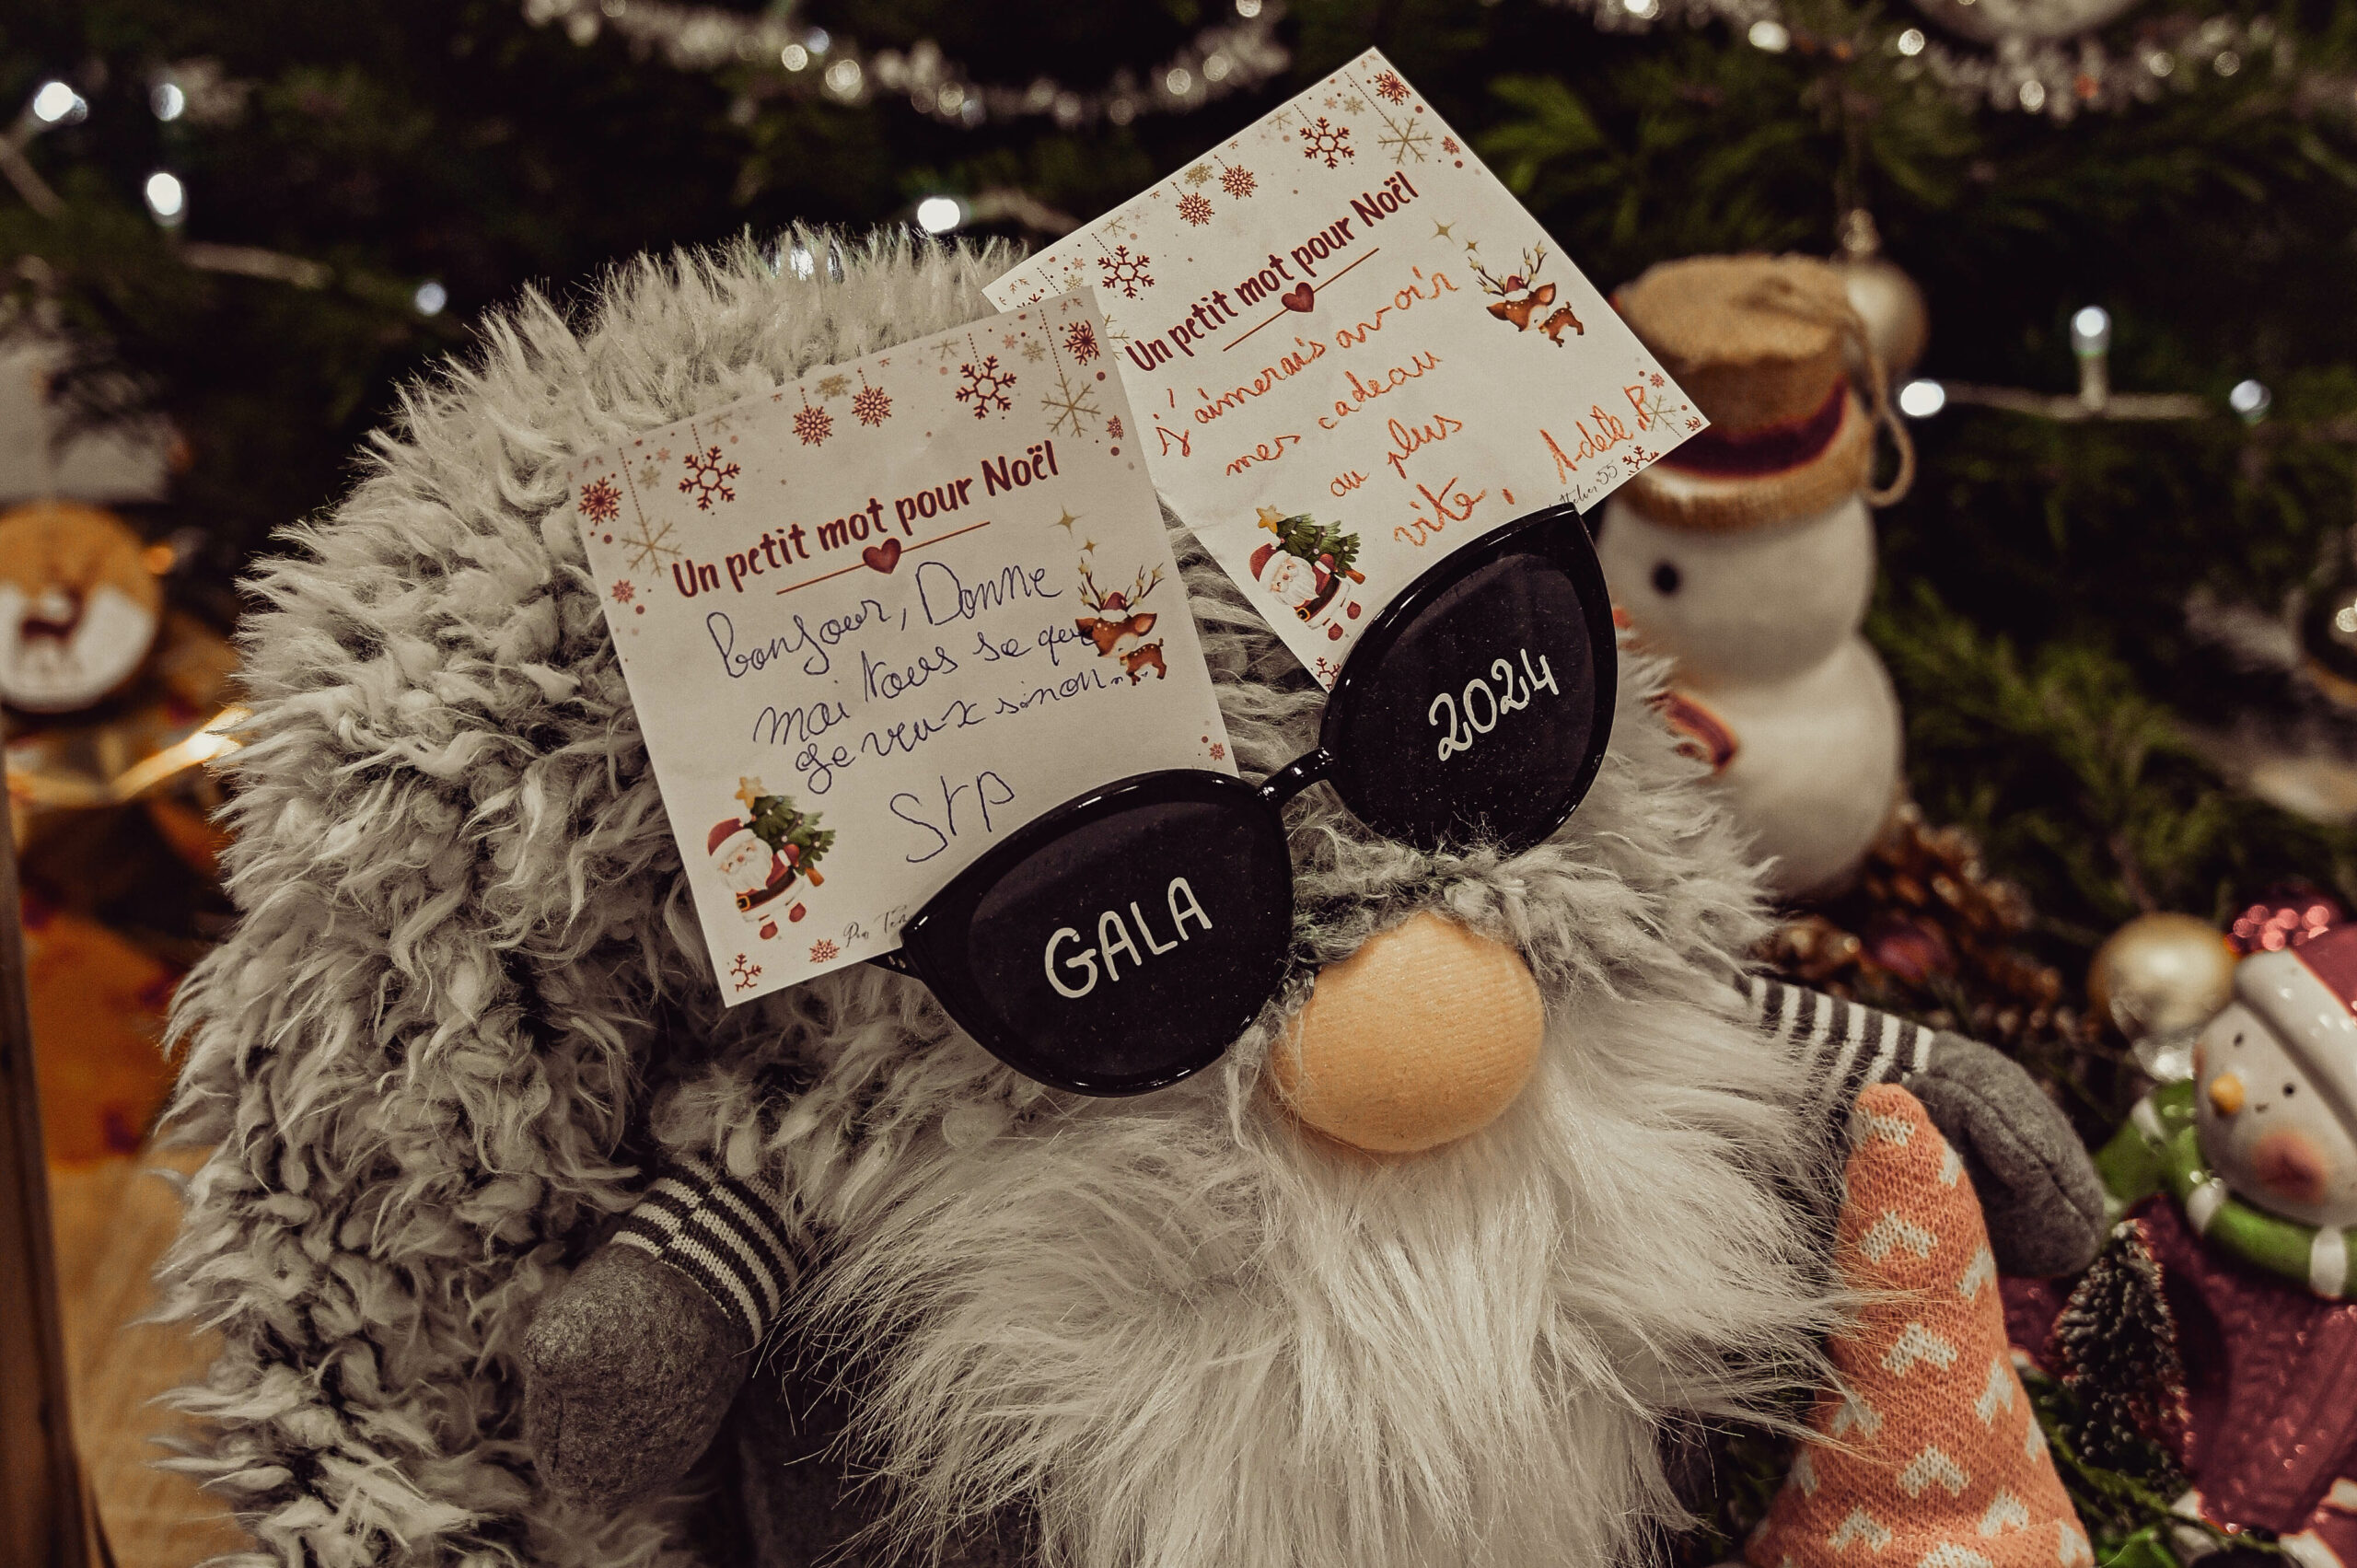 Un petit mot pour Noël
Bonjour, Donne
moi tous se que
Je veux sinon....
Stp
Un petit mot pour Noël
j'aimerais avoir
mes cadeau
au plus
vite, Adèle R
GALA
2024